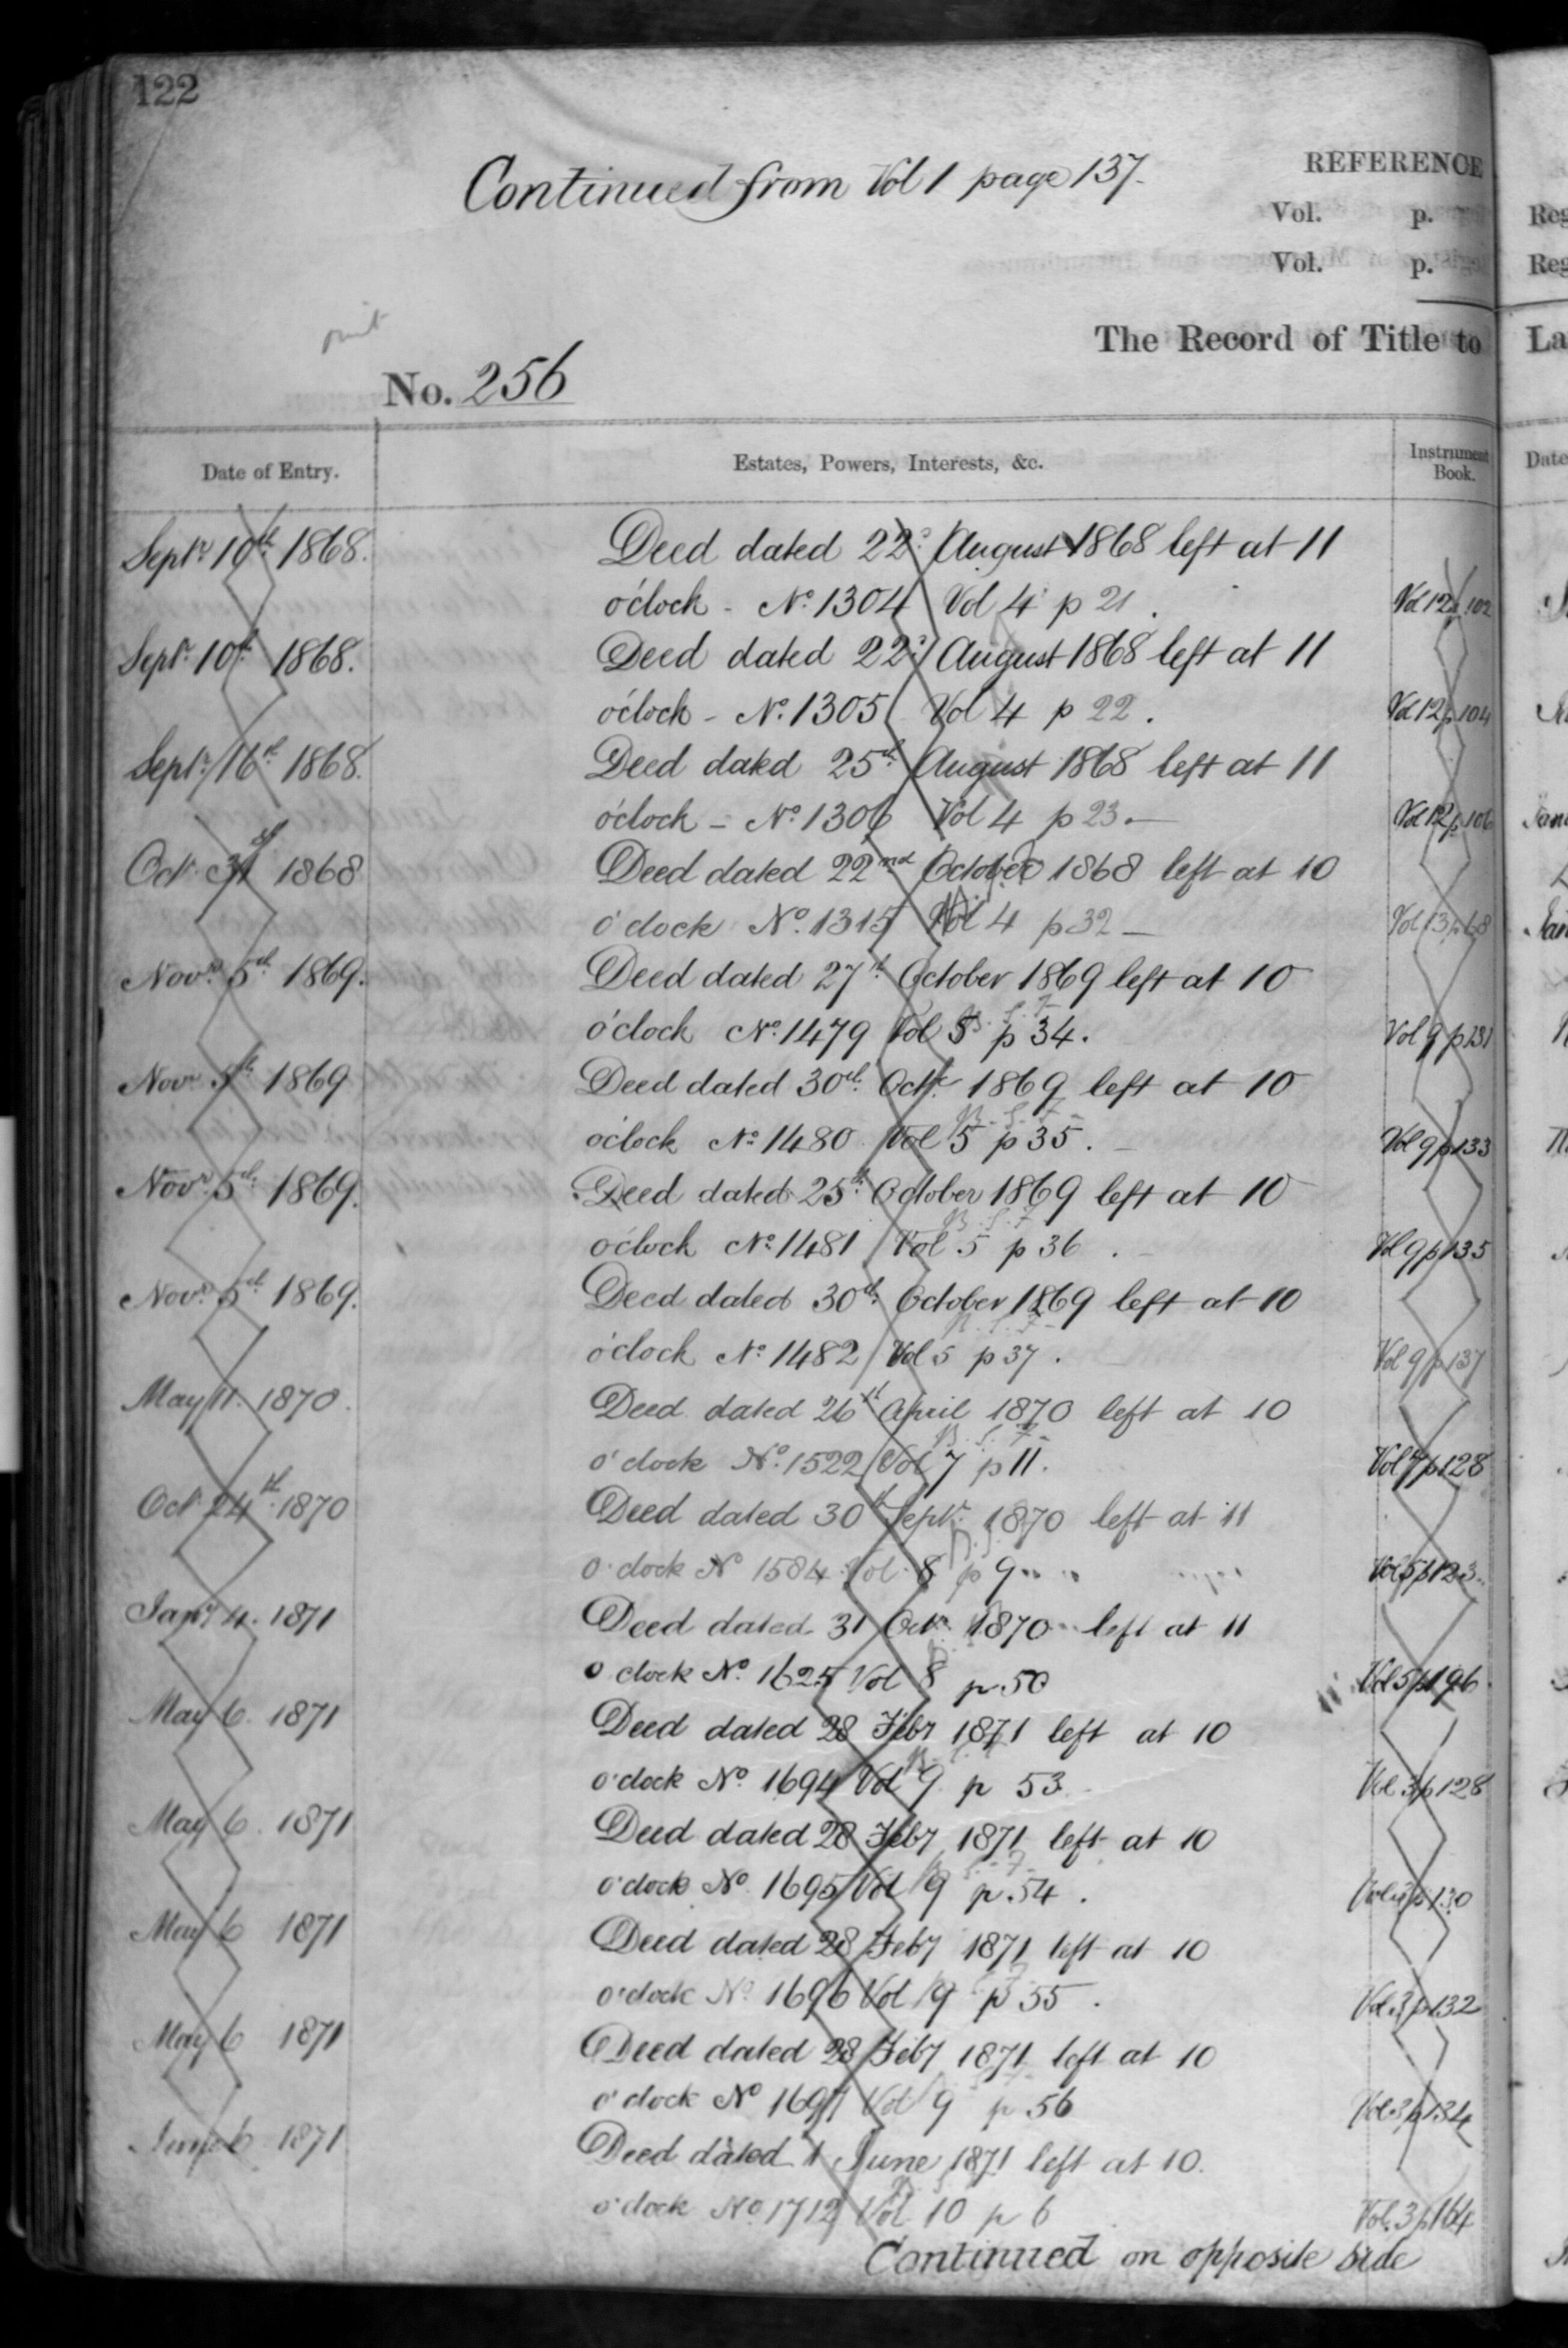 122
Continued from Vol 1 page 137.
REFERENCE
Vol. p.
Vol. p.
Reg
Reg
The Record of Title to
La
No. 256
Date of Entry. Estates, Powers, Interests, &c. Instrument Book.
Date
Septr. 10th 1868. Deed dated 22d August 1868 left at 11
o'clock - No. 1304 Vol 4 p 21. Vol 12 p 102
Septr. 10th 1868. Deed dated 22d August 1868 left at 11
o'clock - No. 1305 Vol 4 p 22. Vol 12 p 104
Septr. 16th 1868. Deed dated 25th August 1868 left at 11
o'clock - No. 1306 Vol 4 p 23.— Vol 12 p 106
Oct. 31st 1868 Deed dated 22nd October 1868 left at 10
o'clock No. 1315 Vol 4 p 32 — Vol 13 p 68
Novr. 5th 1869. Deed dated 27th October 1869 left at 10
o'clock No. 1479 Vol 5 p 34. Vol 9 p 131
Novr. 5th 1869 Deed dated 30th Octr. 1869 left at 10
o'clock No. 1480 Vol 5 p 35. Vol 9 p 133
Novr. 5th 1869. Deed dated 25th October 1869 left at 10
o'clock No. 1481 Vol 5 p 36. Vol 9 p 135
Novr. 5th 1869. Deed dated 30th October 1869 left at 10
o'clock No. 1482 Vol 5 p 37. Vol 9 p 137
May 11. 1870. Deed dated 26th April 1870 left at 10
o'clock No. 1522 Vol 7 p 11. Vol 7 p 128
Oct. 24th 1870 Deed dated 30th Septr. 1870 left at 11
o'clock No 1584 Vol 8 p 9 Vol 5 p 123
Jany 4. 1871 Deed dated 31 Octr. 1870 left at 11
o'clock No. 1625 Vol 8 p 50 Vol 5 p 196
May 6. 1871 Deed dated 28 Feby 1871 left at 10
o'clock No. 1694 Vol 9 p 53 Vol 3 p 128
May 6. 1871 Deed dated 28 Feby 1871 left at 10
o'clock No 1695 Vol 9 p. 54. p 130
May 6 1871 Deed dated 28 Feby 1871 left at 10
o'clock No 1696 Vol 9 p 55. Vol. 3 p 132
May 6 1871 Deed dated 28 Feby 1871 left at 10
o'clock No 1697 Vol 9 p 56 Vol. 3 p 134
June 6 1871 Deed dated 1 June 1871 left at 10.
o'clock No. 1712 Vol 10 p 6 Vol. 3 p 164
Continued on opposite side